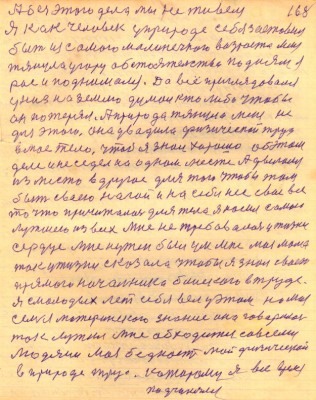 А без этого дела мы не живем 168
Я как человек у природе себя заставил
быть из самого маленького возраста меня
тянула у гору обстоятельство поднялся
рас и поднимали. Да все приглядовался
униз на землю думал кто либо чтобы
он потерял. А природа тянула меня не
для этого, она увадила физический труд
в мое тело, чтобы я знал хорошо об этом
деле и не сидел на одном месте А двигался
из место в другое для того чтобы там
быть своею ногой и на себя не свое все
то что причиталося для тела я носил самого
лутшего из всех мне не требовалося у жизни
сердце мне нужен был ум мне моя мама
так у жизни сказала чтобы я знал своего
прямого начальника близкого в труде.
Я с молодых лет себя вел у этом на то
семья материнского знание она говорила
так лутше мне обходится со всеми
людями моя бедность мой физический
в природе труд. Которому я все время
подчинялся